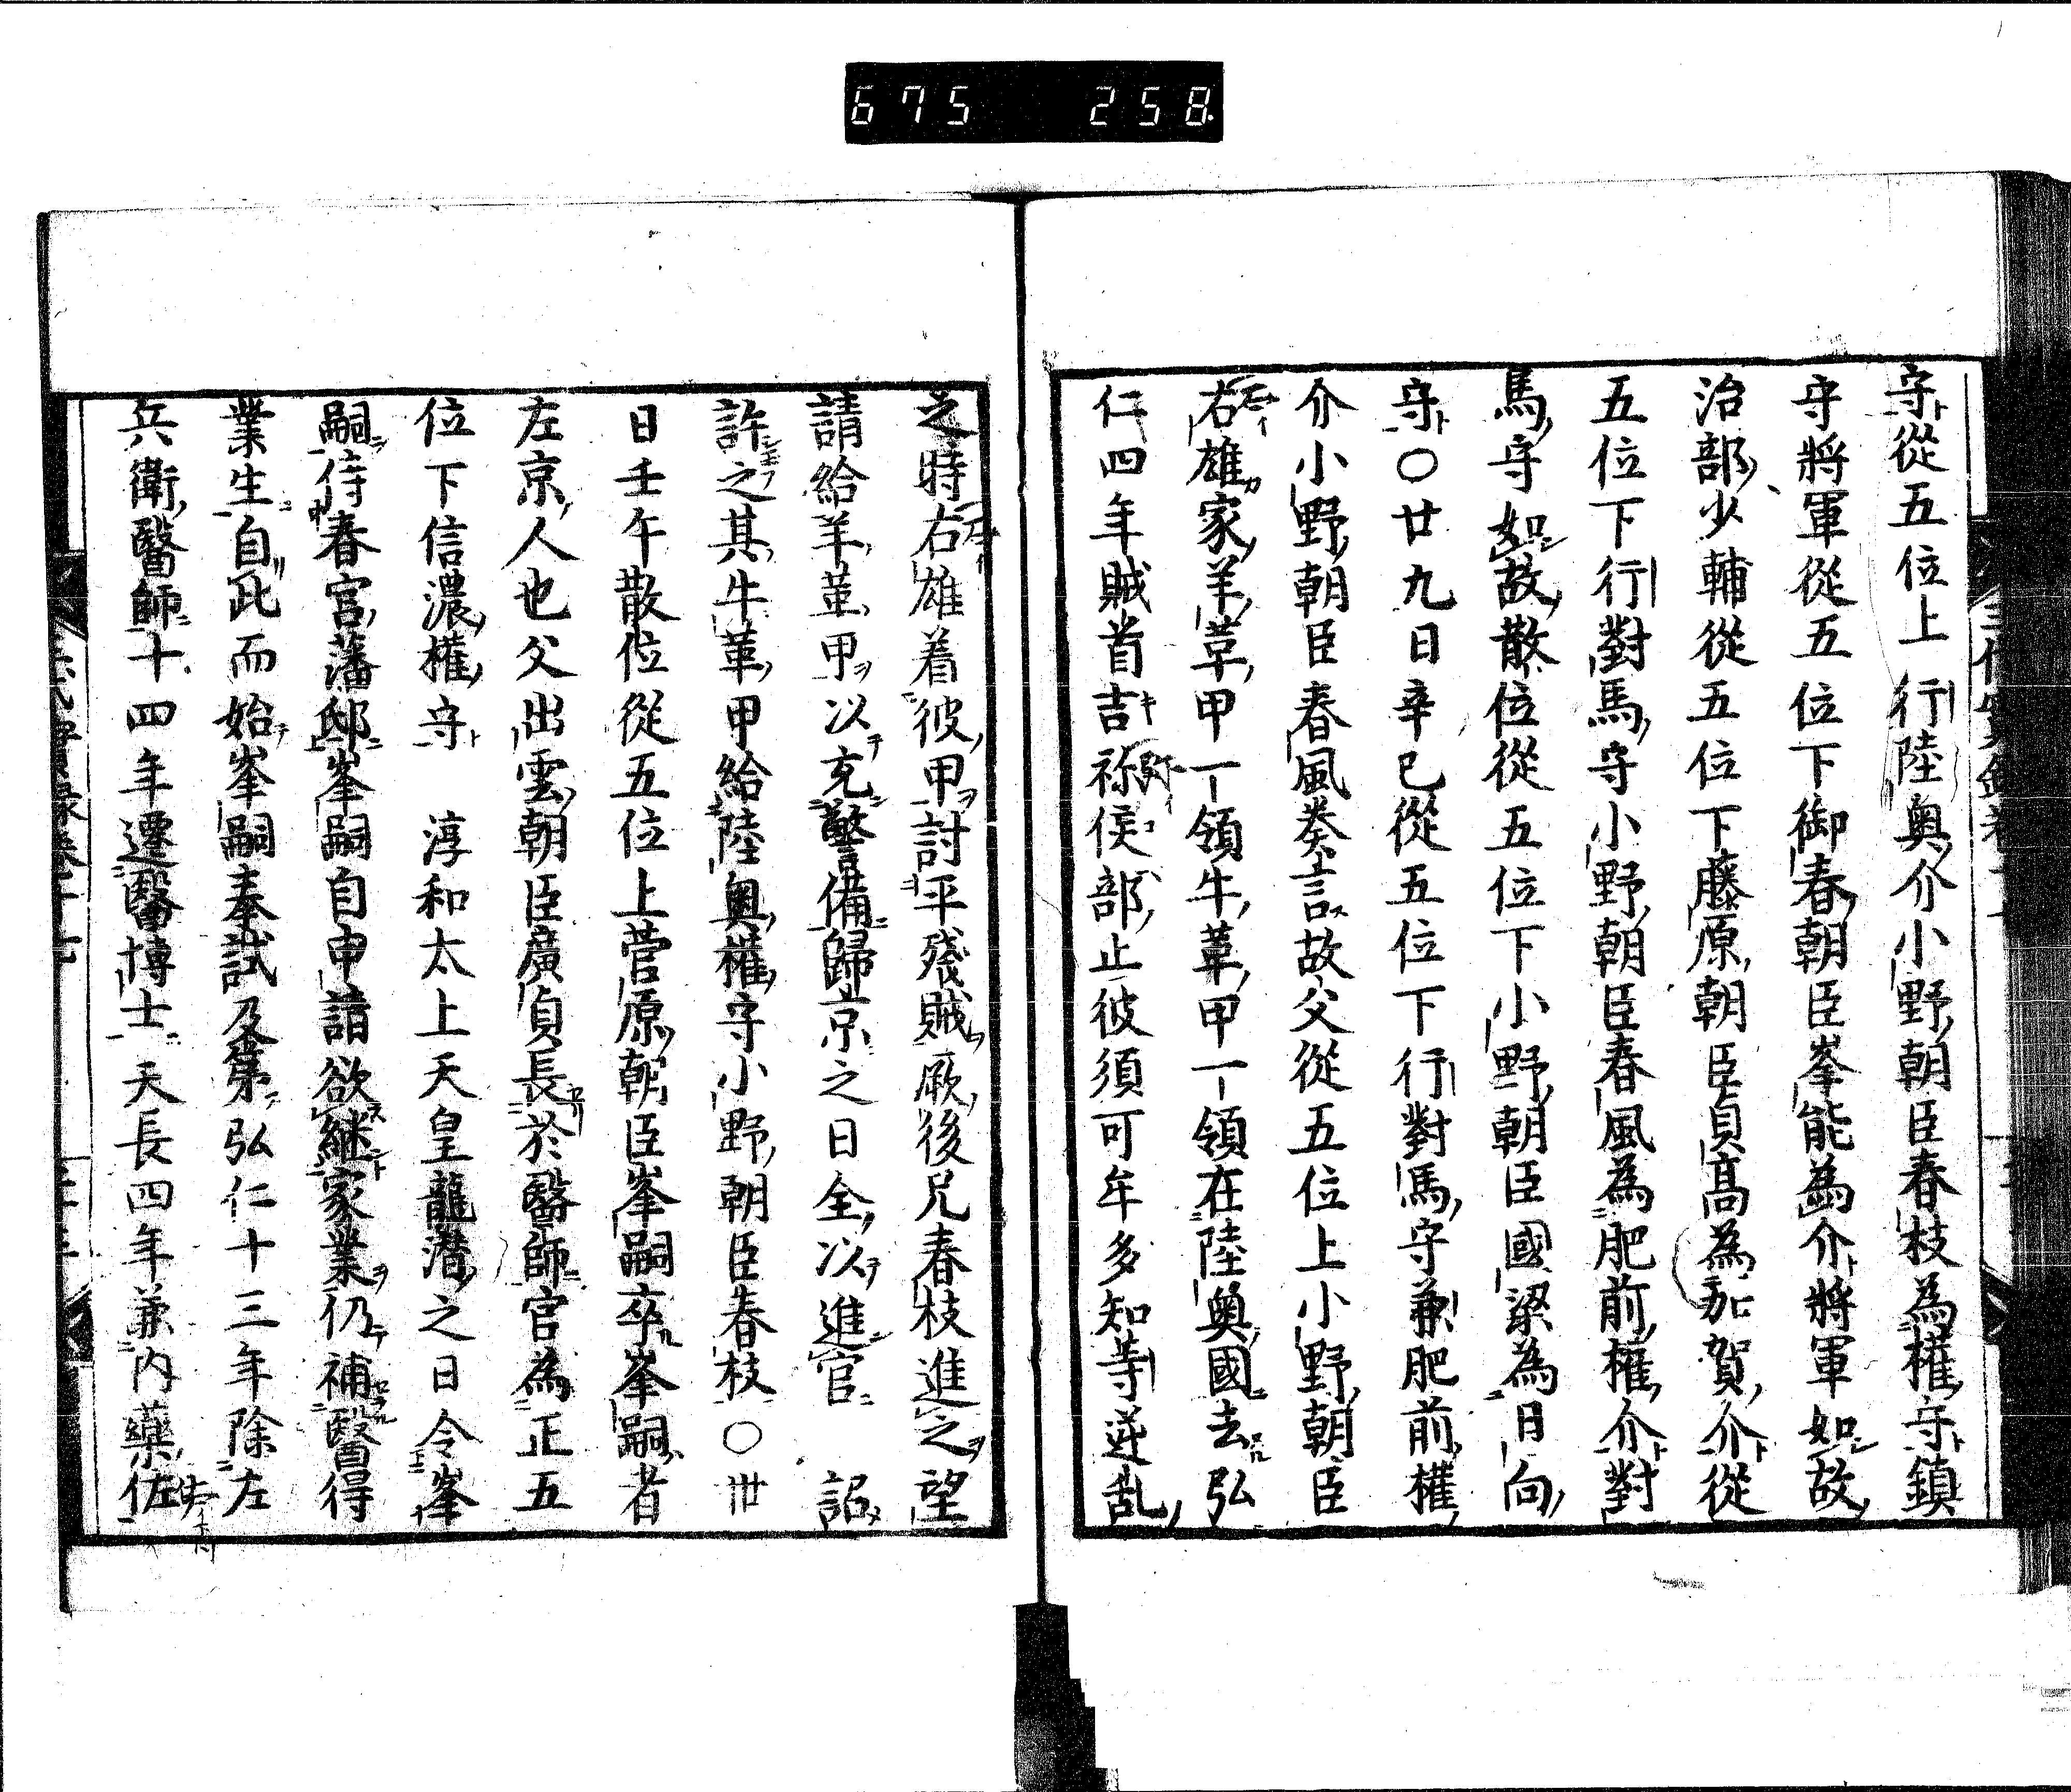 675 258.
守從五位上行陸奥介小野朝臣春枝為權守鎮
守將軍從五位下御春朝臣峯能為介將軍如故
治部少輔從五位下藤原朝臣貞髙為加賀介從
五位下行對馬守小野朝臣春風為肥前權介對
馬守如故散位從五位下小野朝臣國梁為日向
守〇廿九日辛巳從五位下行對馬守兼肥前權
介小野朝臣春風奏言故父從五位上小野朝臣
右雄家羊革甲一領牛革甲一領在陸奥國去弘
仁四年賊首吉弥侯部止彼須可牟多知等逆乱
之時右雄着彼甲討平殘賊厥後兄春枝進之望
請給羊革甲以充警備歸京之日全以進官 詔
許之其牛革甲給陸奥權守小野朝臣春枝〇卅
日壬午散位從五位上菅原朝臣峯嗣卒峯嗣者
左京人也父出雲朝臣廣貞長於醫師官為正五
位下信濃權守 淳和太上天皇龍潜之日令峯
嗣侍春宮藩邸峯嗣自申請欲継家業仍補醫得
業生自此而始峯嗣奉試及第弘仁十三年除左
兵衛醫師十四年遷醫博士天長四年兼内藥佐